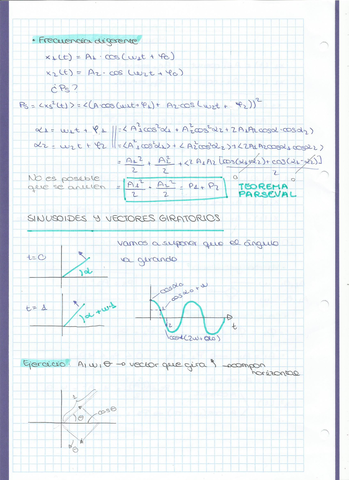 • Frecuencia diferente
x₁(t) = A₁ · cos(ω₁t + φ₁)
x₂(t) = A₂ · cos(ω₂t + φ₂)
¿Ps?
Ps = <xs²(t)> = <(A·cos(ω₁t+φ₁) + A₂·cos(ω₂t + φ₂))²
α₁ = ω₁t + φ₁ = <A₁²cos²α₁ + A₂²cos²α₂ + 2A₁A₂cosα₁·cosα₂>
α₂ = ω₂t + φ₂ = <A₁²cos²α₁> + <A₂²cos²α₂> + <2A₁A₂cosα₁cosα₂>
= A₁²/2 + A₂²/2 + <2A₁A₂ [cos(α₁+α₂) + cos(α₁-α₂)]/2>
No es posible
que se anulen
A₁²/2 + A₂²/2 = P₁ + P₂
TEOREMA
PARSEVAL
SINUSOIDES Y VECTORES GIRATORIOS
vamos a suponer que el ángulo
va girando
t=0
α
t=1
α+ω1
cosα₀
cosα₀+ω
cos(2ω+α₀)
t
Ejercicio: A, ω, θ → vector que gira → compon
horizontal
θ
cosθ
θ